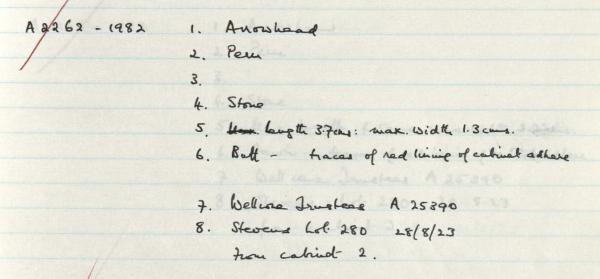 A 2262 - 1982 1. Arrowhead
2. Peru
3.
4. Stone
5. length 37cms: max. width 1.3cms.
6. Butt - traces of red lining of cabinet adhere
7. Wellcome Trustees A 25390
8. Stevens Lot 280 28/8/23
from cabinet 2.